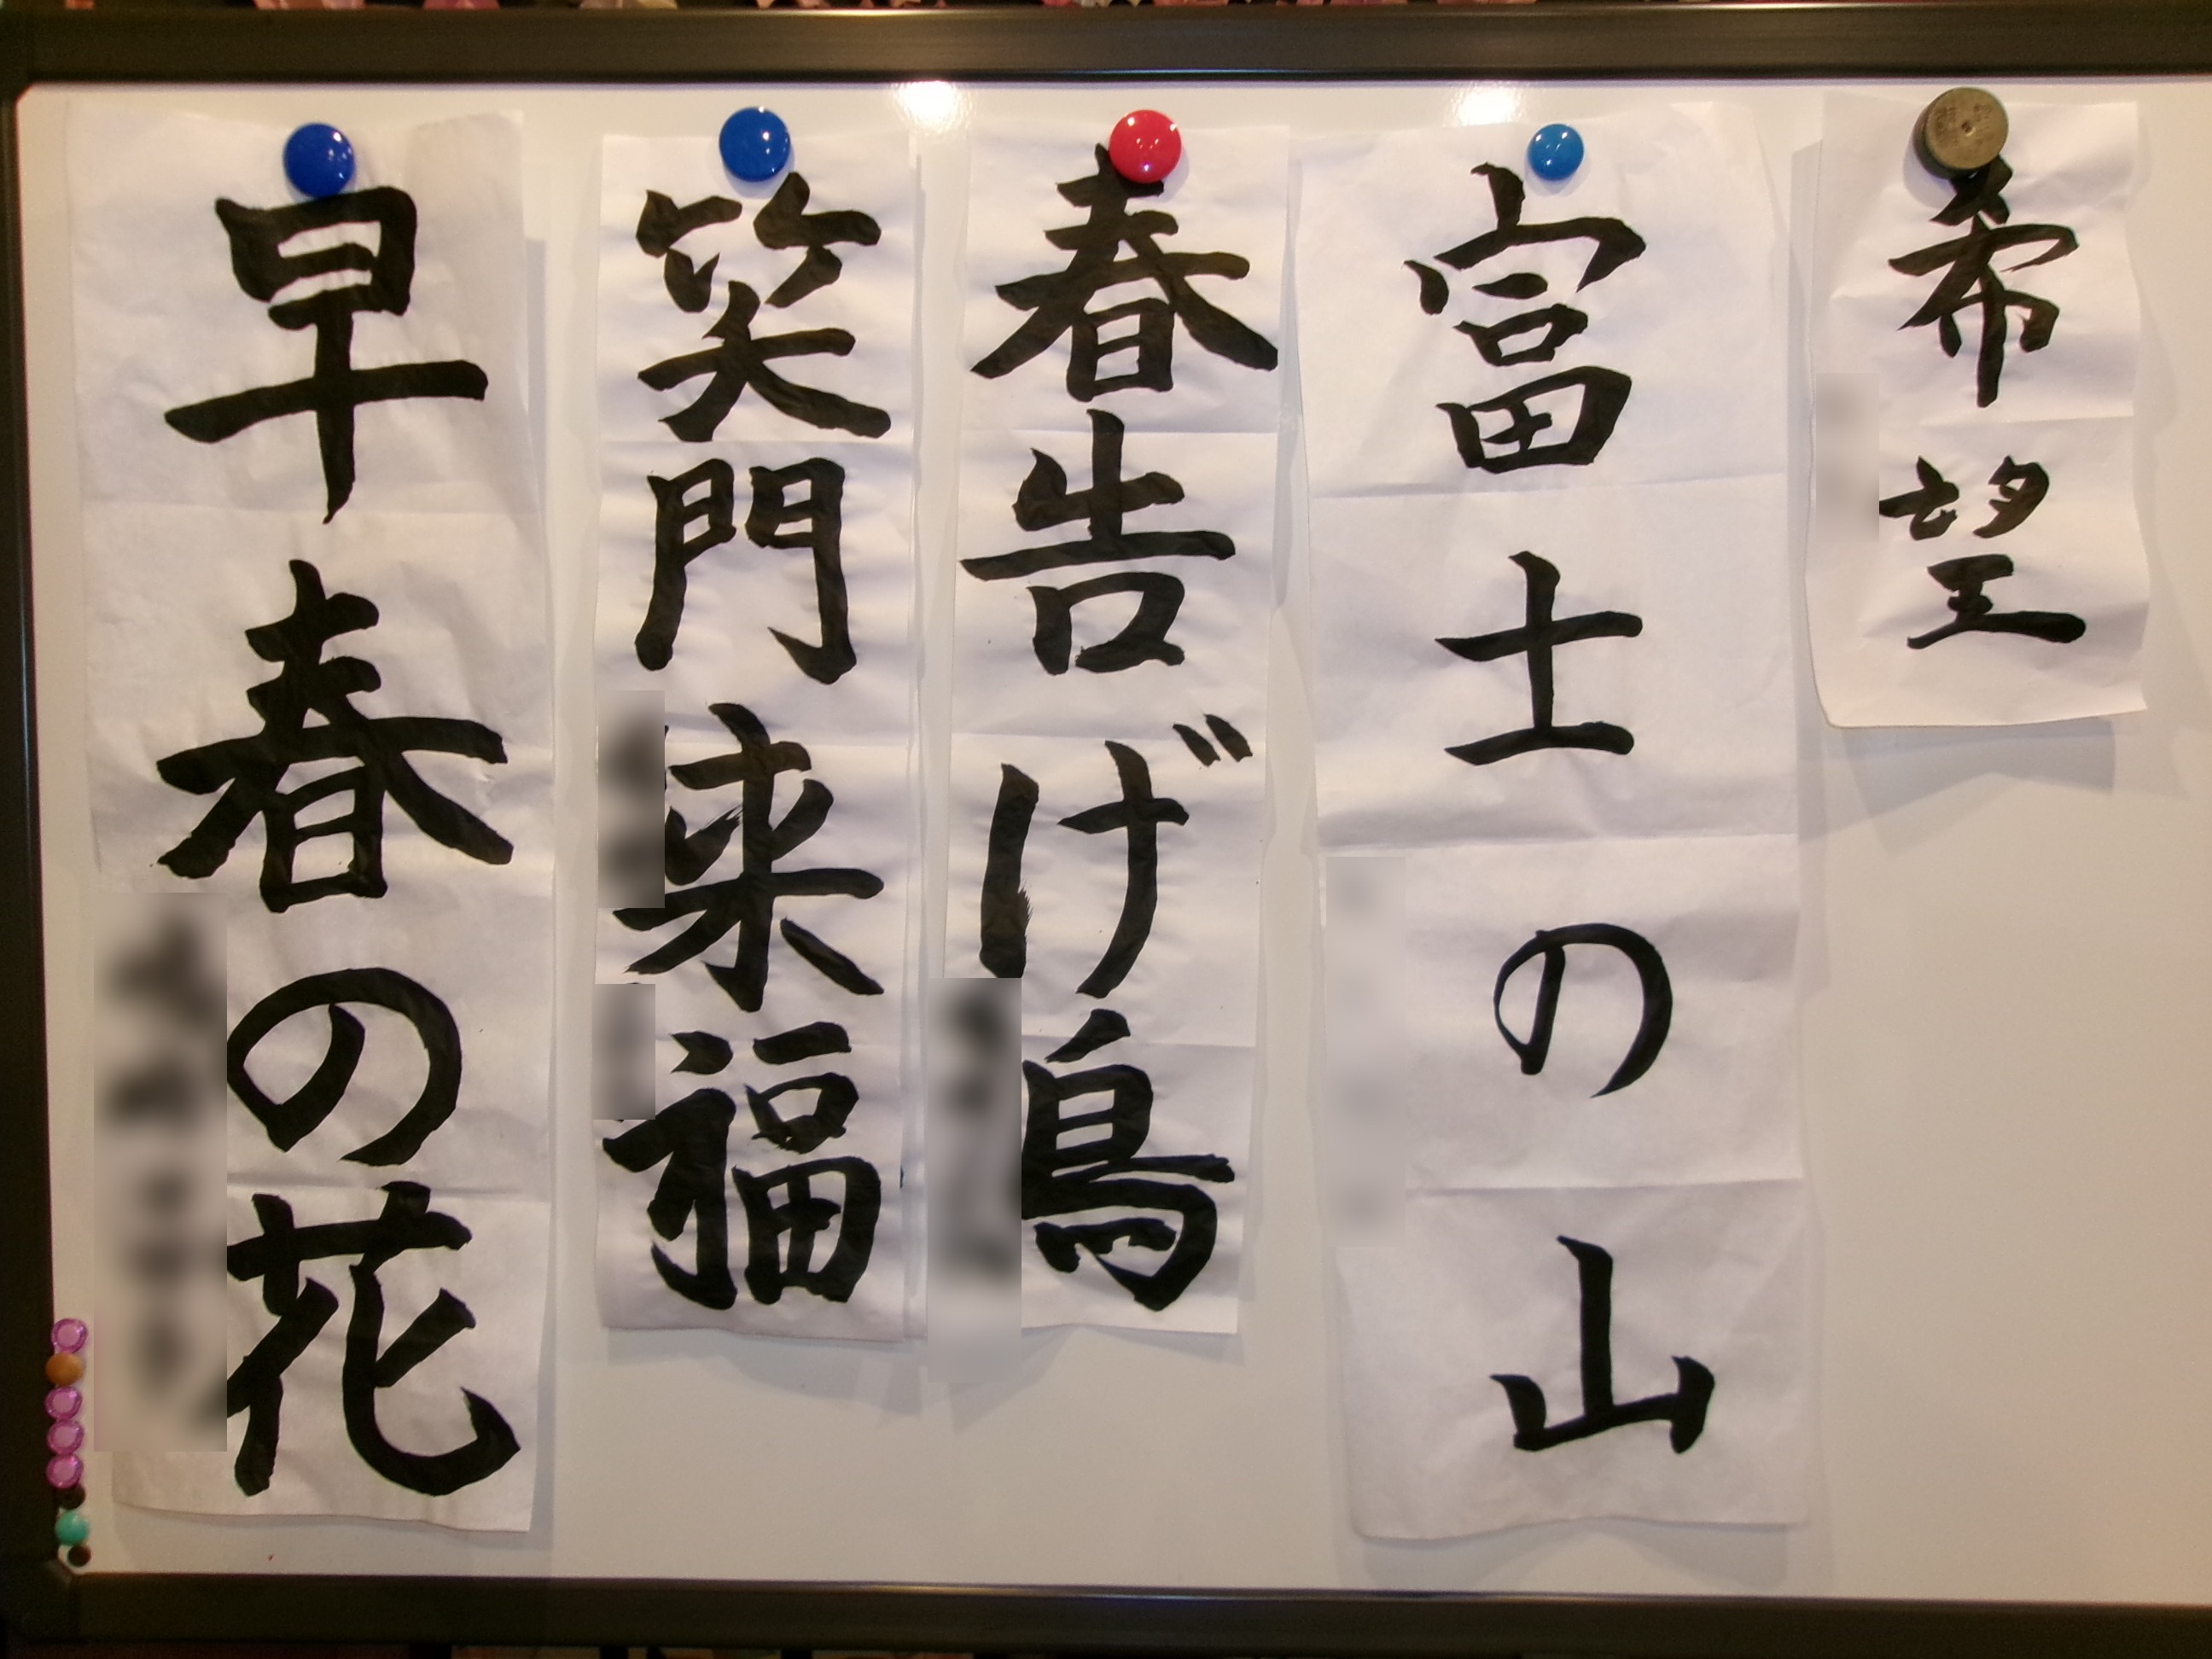 希望
富士の山
春告げ鳥
笑門来福
早春の花